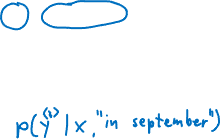 p(y^<1> | x, "in september")